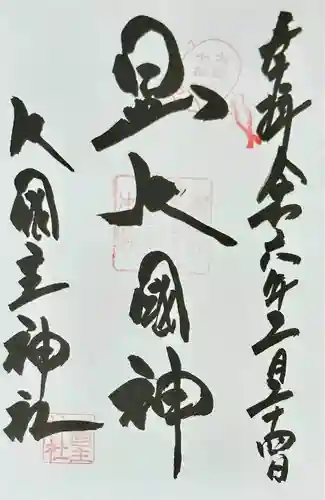 奉拝 令和六年二月二十四日
显大國神
大国主神社